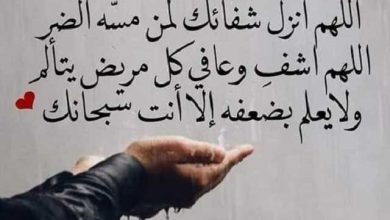 اللهم انزل شفائك لمن مسّه الضر
اللهم اشفِ وعافي كل مريض يتألم
ولا يعلم بضعفه إلا أنت سبحانك